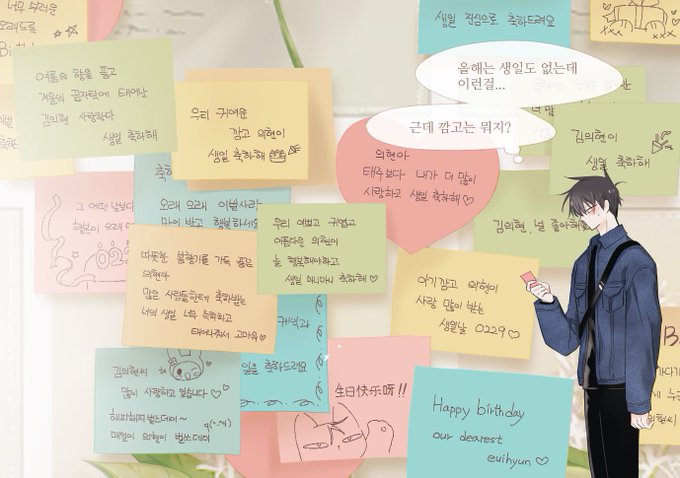 너무 부러운
오래도록
생일 진심으로 축하드려요
올해는 생일도 없는데
이런걸...
근데 깜고는 뭐지?
여름의 향을 품고
겨울의 끝자락에 태어난
김의현 사랑한다
생일 축하해
우리 귀여운
깜고 의현이
생일 축하해
의현아
태주보다 내가 더 많이
사랑하고 생일 축하해♡
김의현이
생일 축하해
그 어떤 날보다
행복이 오래
축하
오래 오래 이쁨사랑
많이 받고 행복하세요
우리 이쁘고 귀엽고
아름다운 의현이
늘 행복해야하고
생일 마니마니 축하해♡
김의현, 널 좋아해
따뜻한 봄향기를 가득 품은
의현아
많은 사람들한테 축하받는
너의 생일 너무 축하하고
태어나줘서 고마워♡
아기깜고 의현이
사랑 많이 받는
생일날 0229♡
축하드려요
김의현씨
많이 사랑하고 있습니다♡♡
해피해피 벌쓰데이~
매일이 의현이 벌쓰데이
生日快乐呀!!
Happy birthday
our dearest
euihyun♡